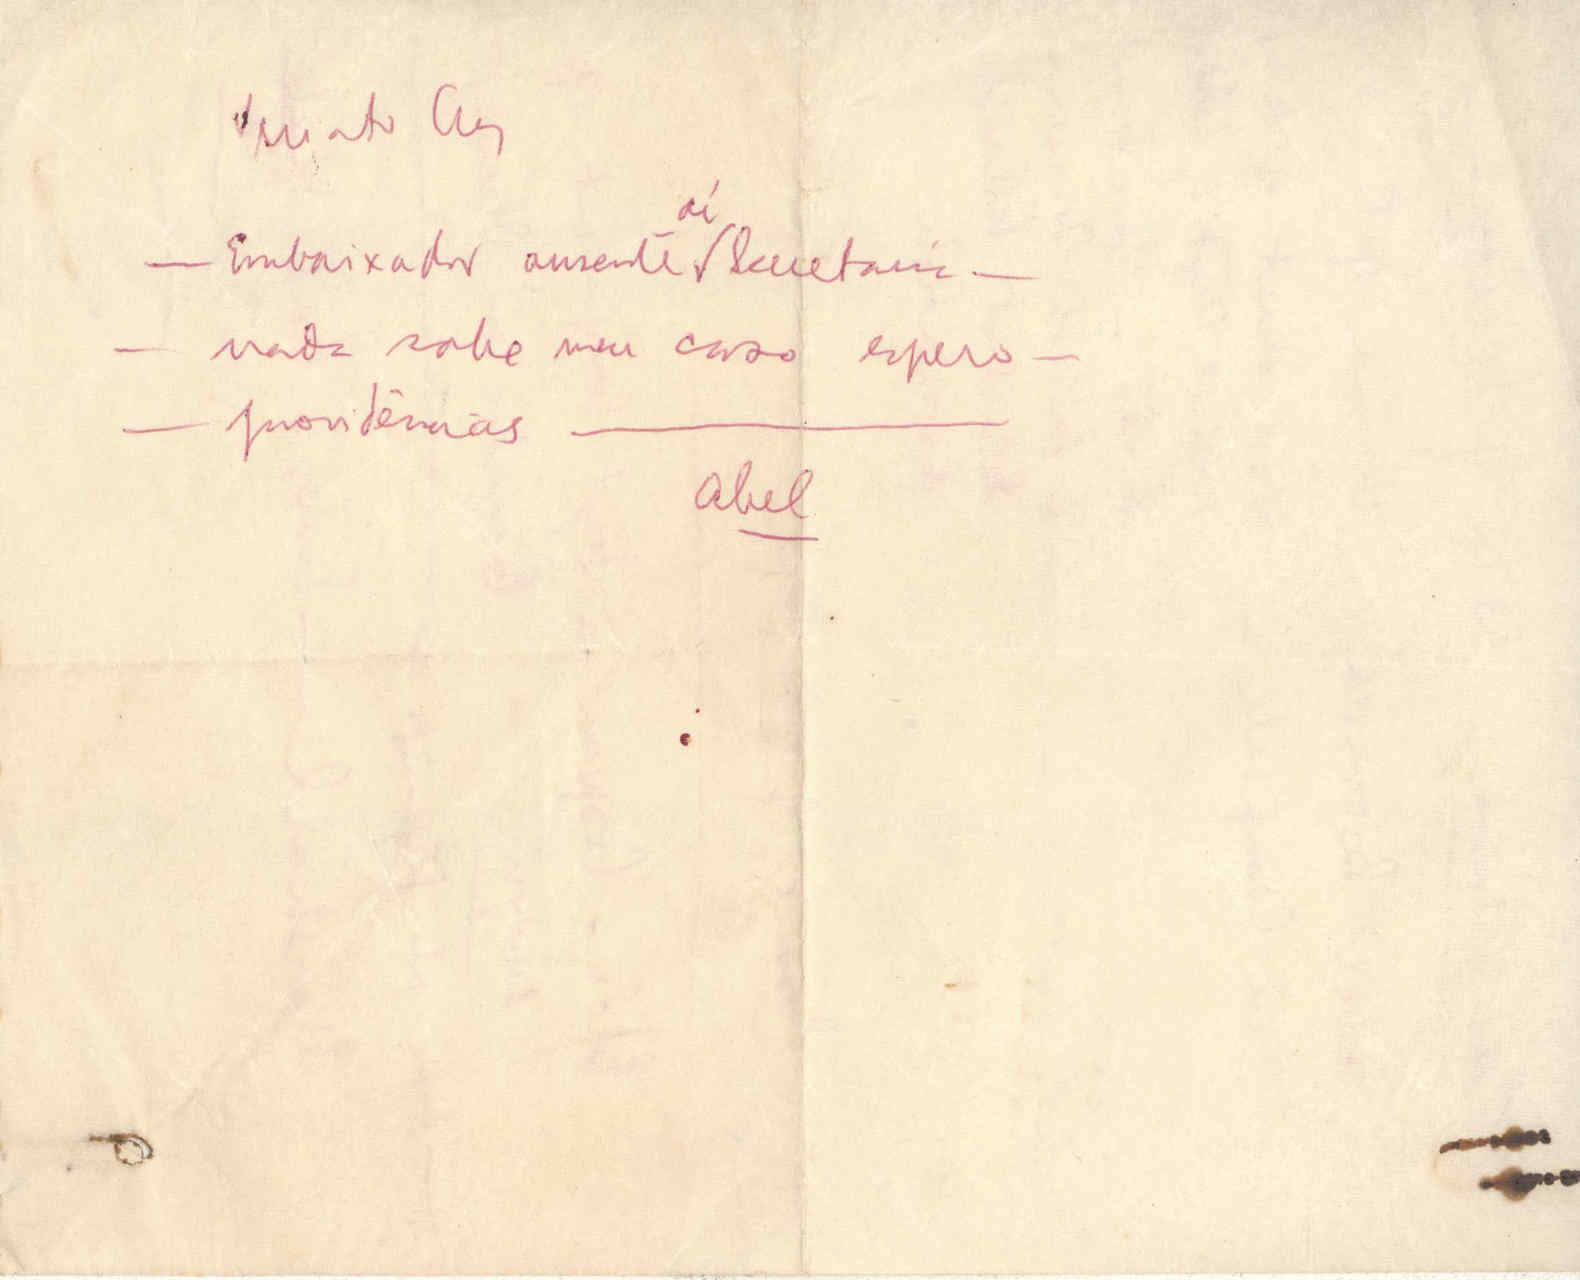 — Embaixador ausente aí Secretaria —
— nada sabe meu caso espero —
— providências —
Abel